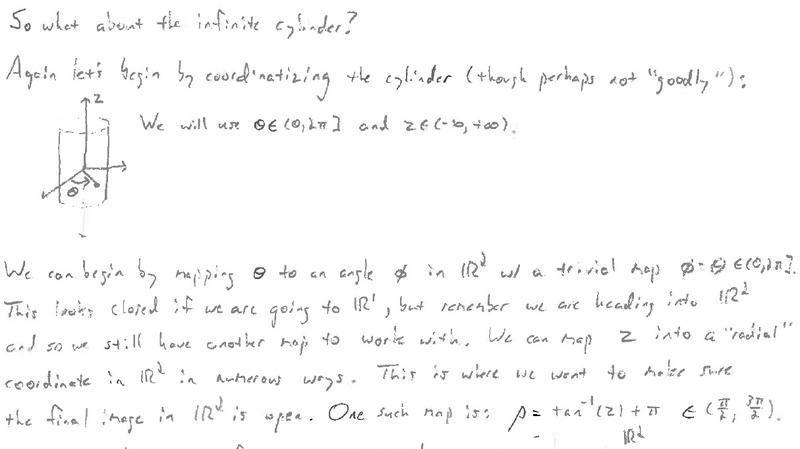 So what about the infinite cylinder?
Again let's begin by coordinatizing the cylinder (though perhaps not "goodly"):
z
We will use θ∈(0,2π] and z∈(-∞,+∞).
θ
We can begin by mapping θ to an angle ϕ in ℝ² w/ a trivial map ϕ=θ∈(0,2π].
This looks closed if we are going to ℝ¹, but remember we are heading into ℝ²
and so we still have another map to work with. We can map z into a "radial"
coordinate in ℝ² in numerous ways. This is where we want to make sure
the final image in ℝ² is open. One such map is: ρ = tan⁻¹(z)+π ∈ (π/2, 3π/2).
ℝ²